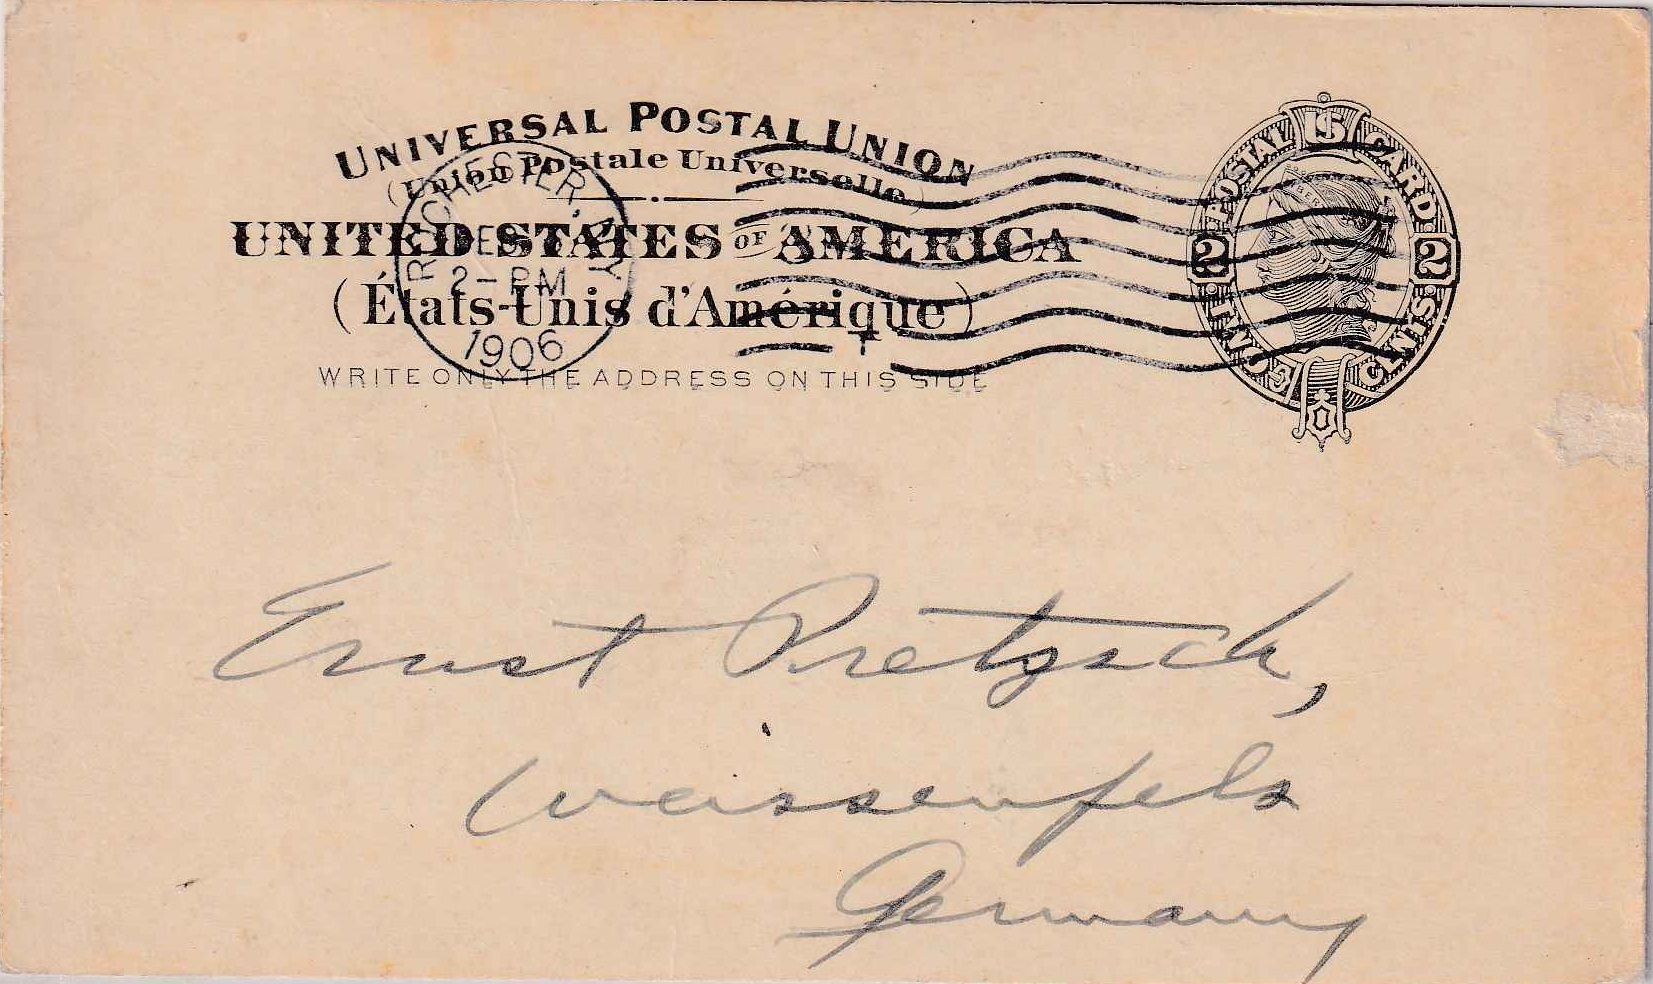 UNIVERSAL POSTAL UNION
(Union Postale Universelle)
UNITED STATES OF AMERICA
(États-Unis d'Amérique)
WRITE ONLY THE ADDRESS ON THIS SIDE
ROCHESTER, N.Y.
2-PM
1906
U.S. POSTAL CARD
2 2
TWO CENTS
Ernst Pretzsch,
Weissenfels
Germany